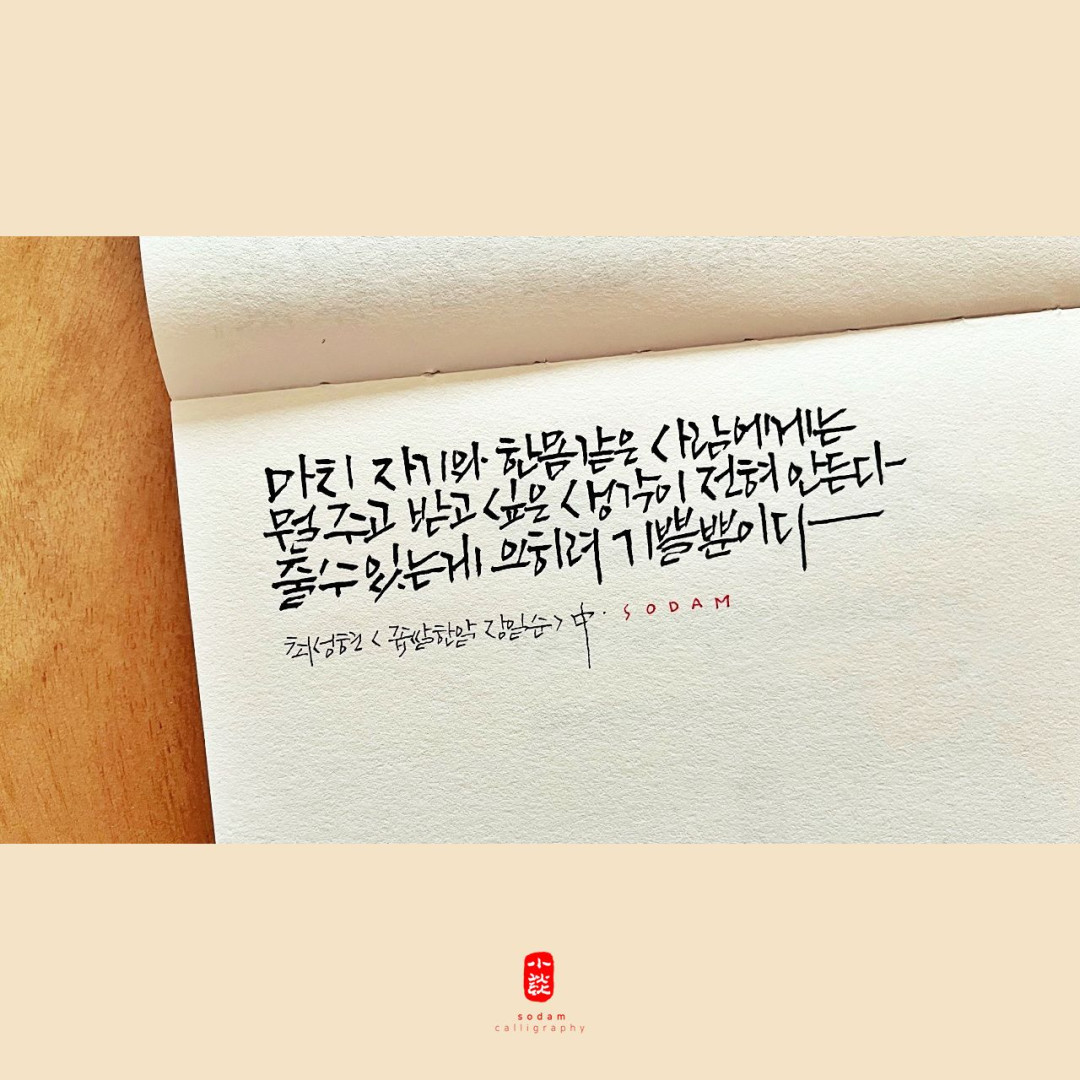 마치 자기와 한몸같은 사람에게는
뭘 주고 받고 싶은 생각이 전혀 안든다
줄 수 있는게 오히려 기쁠뿐이다
최성현 <좁쌀한알 장일순> 中. SODAM
小談
sodam
calligraphy